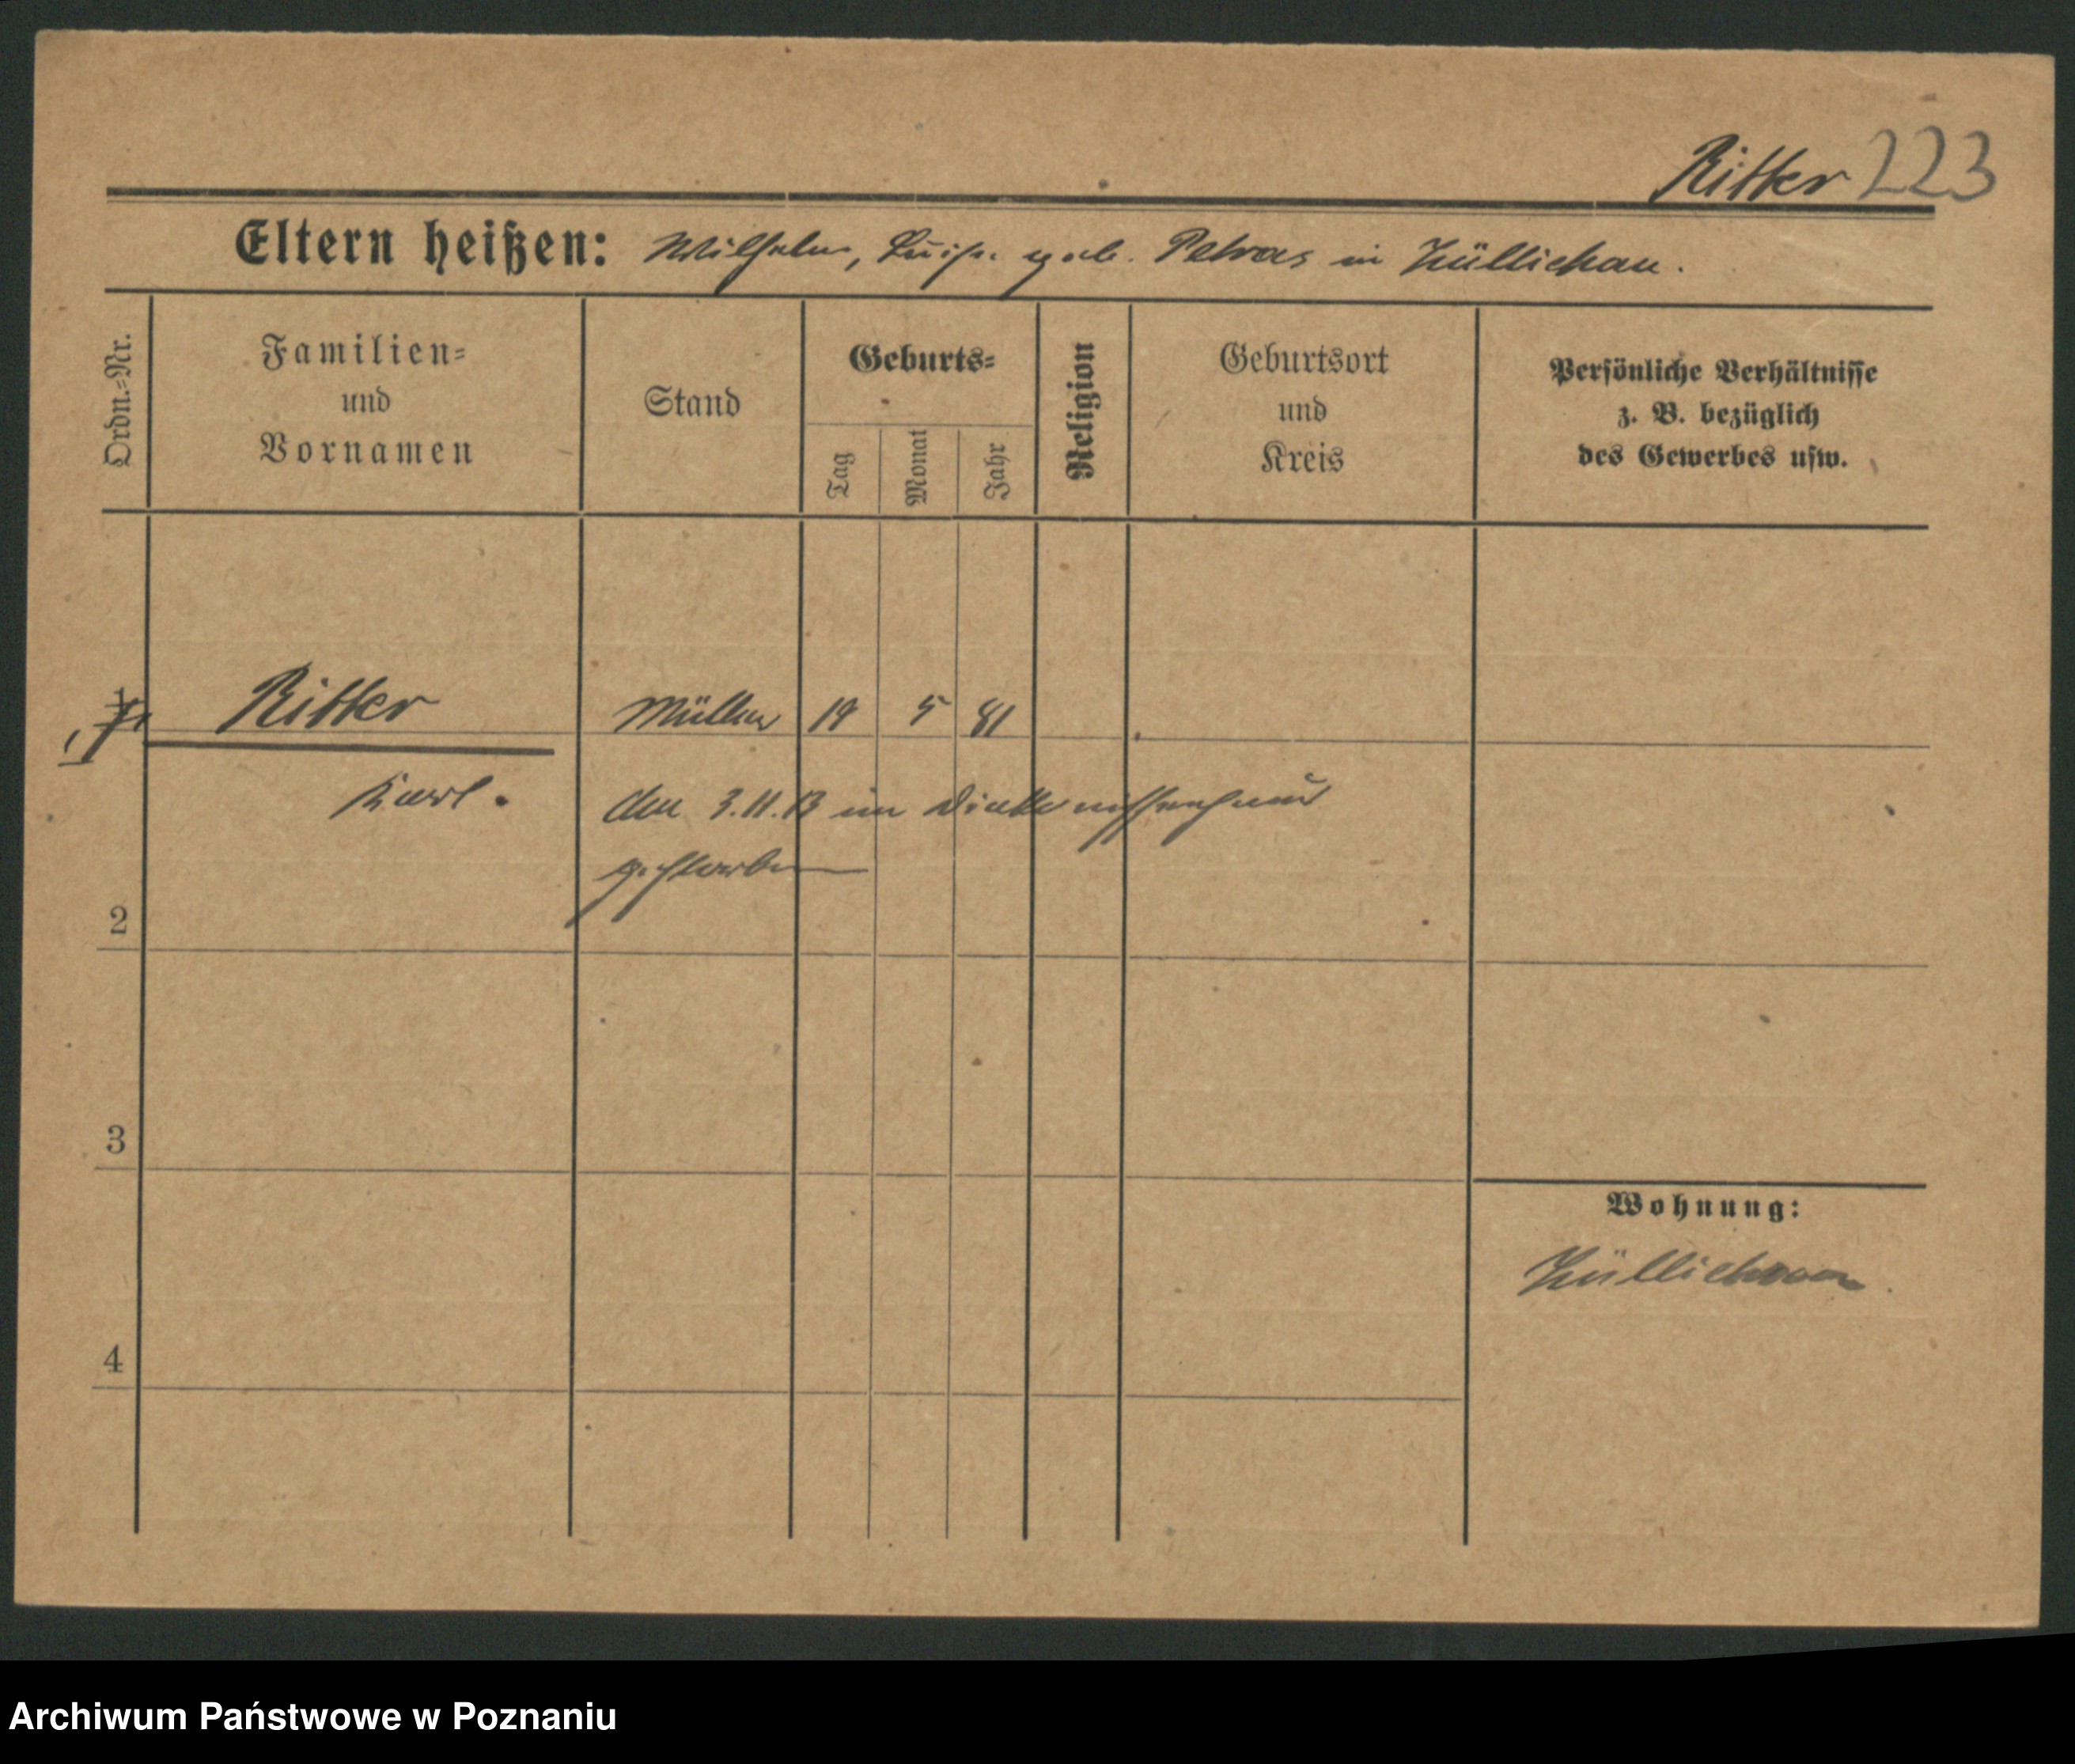 Ritter 223
Eltern heißen: Wilhelm, Luise geb. Petras in Züllichau.
Ordn.-Nr.
Familien-
und
Vornamen
Stand
Geburts-
Tag
Monat
Jahr
Religion
Geburtsort
und
Kreis
Persönliche Verhältnisse
z. B. bezüglich
des Gewerbes usw.
Ritter Müller 19 5 81
Karl. den 3.11.13 im Diakonissenhaus
gestorben
2
3
Wohnung:
Züllichau
4
Archiwum Państwowe w Poznaniu